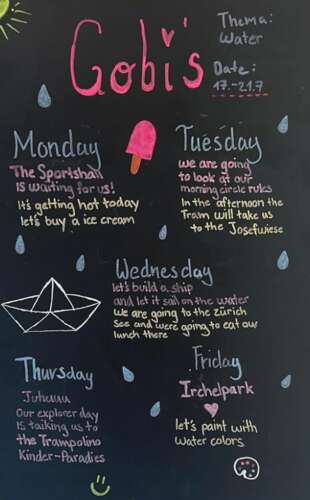 Gobi's
Thema:
Water
Date:
17.-21.7
Monday
The Sportshall
is waiting for us!
It's getting hot today
let's buy a ice cream
Tuesday
we are going
to look at our
morning circle rules
In the afternoon the
Tram will take us
to the Josefwiese
Wednesday
let's build a ship
and let it sail on the water
we are going to the zürich
See and were going to eat our
lunch there
Thursday
Juhuuu
Our explorer day
is taiking us to
the Trampolino
Kinder-Paradies
Friday
Irchelpark
let's paint with
water colors